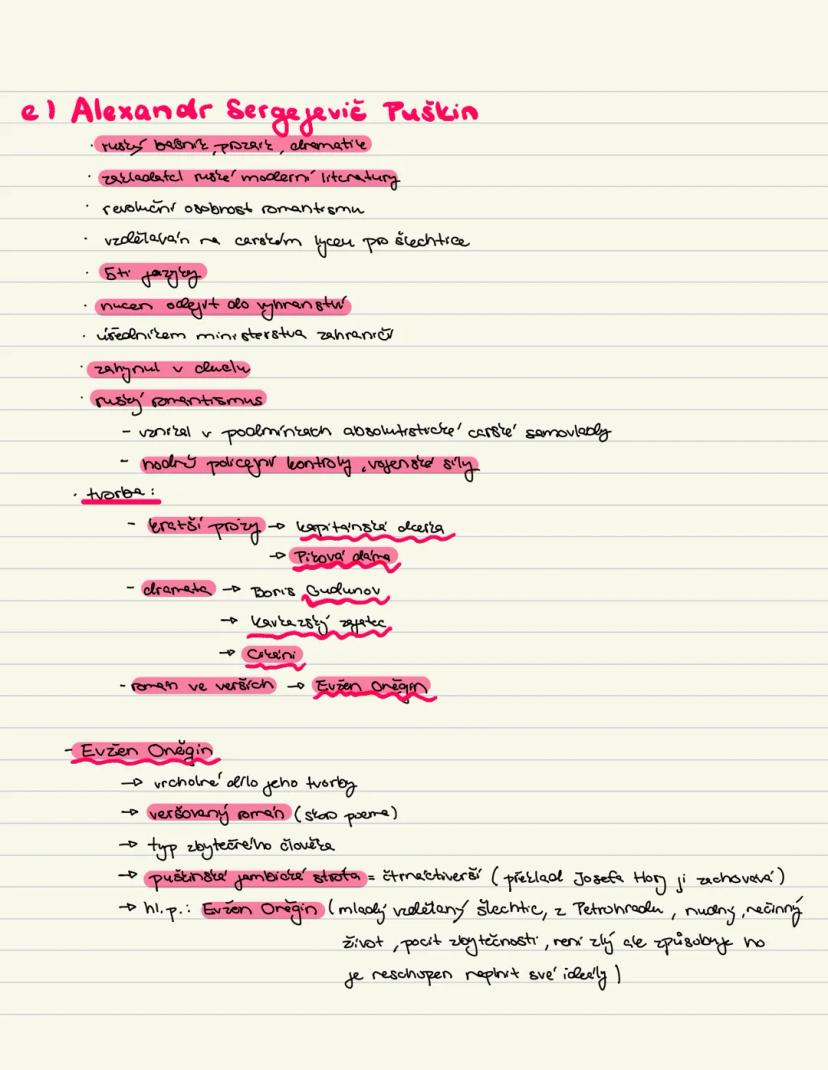 e) Alexandr Sergejevič Puškin
· ruský básník, prozaik, dramatik
· zakladatel ruské moderní literatury
· revoluční osobnost romantismu
· vzděláván na carském lyceu pro šlechtice
· 5ti jazyky
· nucen odejít do vyhnanství
· úředníkem ministerstva zahraničí
· zahynul v duelu
· ruský romantismus
- vznikal v podmínkách absolutistické carské samovlády
- hodně policejní kontroly, vojenské síly
· tvorba:
- kratší prózy → Kapitánská dcerka
→ Piková dáma
- dramata → Boris Gudunov
→ Kavkazský zajatec
→ Cikáni
- román ve verších → Evžen Oněgin
- Evžen Oněgin
→ vrcholné dílo jeho tvorby
→ veršovaný román (skoro poema)
→ typ zbytečného člověka
→ puškinské jambické strofa = čtrnáctiverší (překlad Josefa Hory ji zachovává)
→ hl. p.: Evžen Oněgin (mladý vzdělaný šlechtic, z Petrohradu, nudný, nečinný
život, pocit zbytečnosti, není zlý ale způsobuje ho
je neschopen naplnit své ideály)